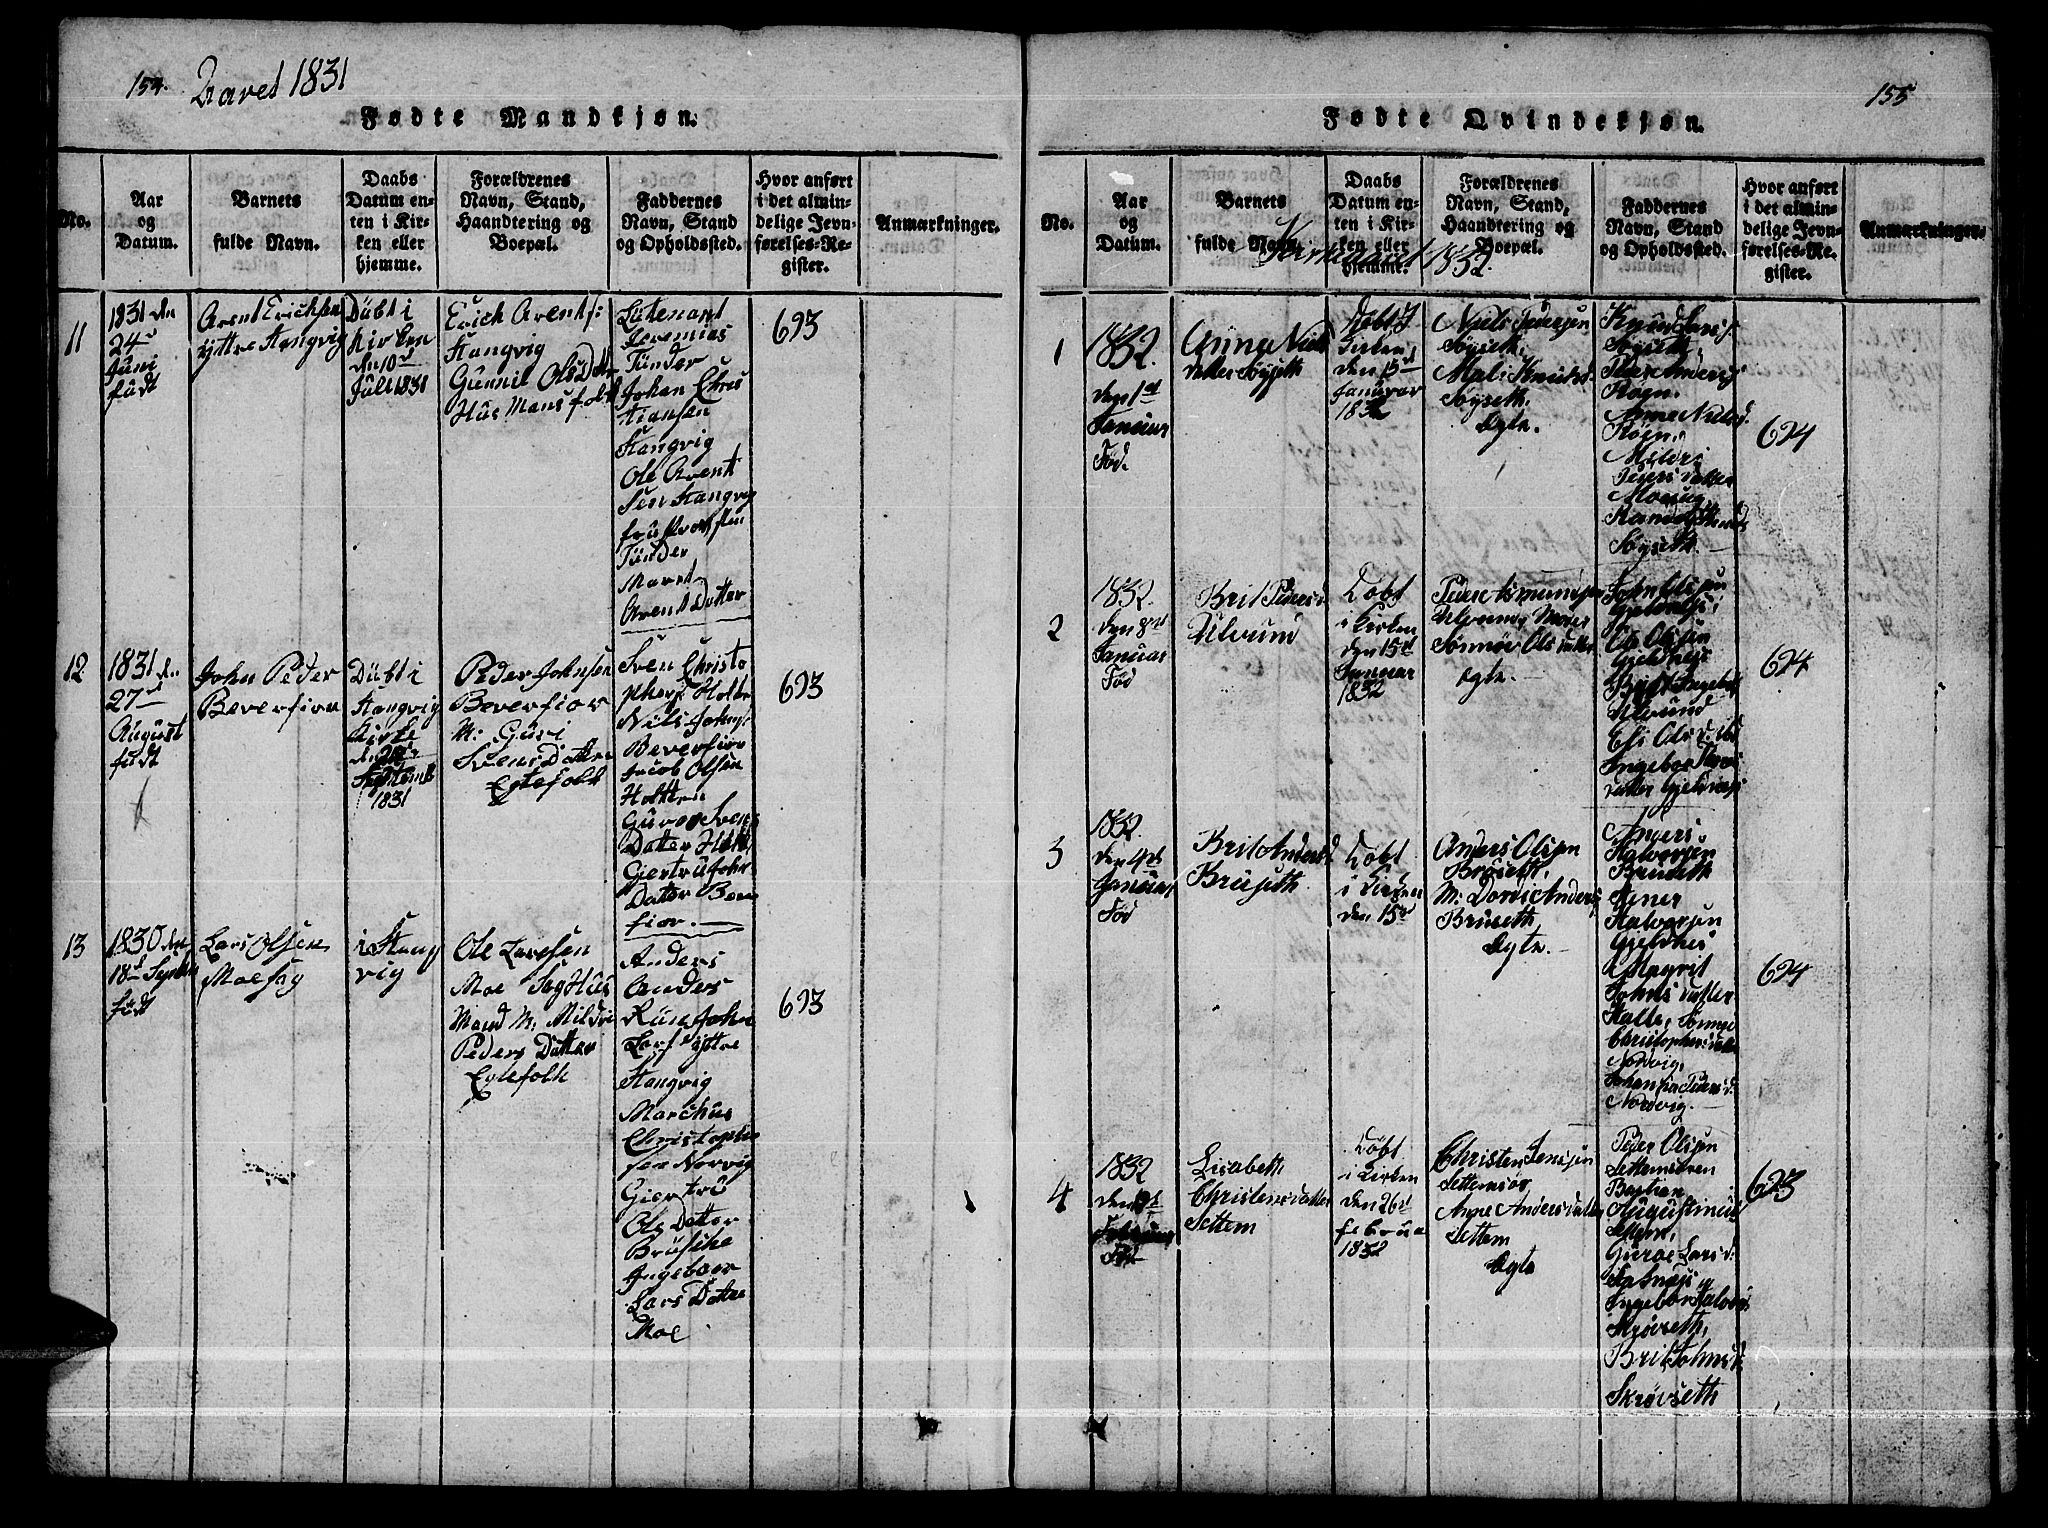 154.
I aaret 1831
Fødte Mandkjøn.
No.
Aar
og
Datum.
Barnets
fulde Navn.
Daabs
Datum en-
ten i Kir-
ken eller
hjemme.
Forældrenes
Navn, Stand,
Haandtering og
Boepæl.
Faddernes
Navn, Stand
og Opholdssted.
Hvor anført
i det almin-
delige Jevn-
førelses-Re-
gister.
Anmærkninger.
11
1831 den
24de
Juni
födt
Arent Erichsen
Yttre Stangvig
Döbt i
Kirken
den 10de
Juli 1831
Erich Arents:
Stangvig
Gunnil Ols Datter
Hus Mans folk
Lütenant
Jeremias
Tönder
Johan Chris
tiansen
Stangvig
Ole Arent
Sen Stangvig
Tönder
Maret
Arent Datter
693
12
1831 den
27de
August
födt
John Peder
Beverfior
Döbt i
Stangvig
Kirke
Septemb
1831
Peder Johnsen
Beverfior
M: Guri
Svens Datter
Egtefolk
Sven Christo
phers Holte
Nils Johns:
Beverfior
Jacob Olsen
Holten
Guroe Svens
Datter Holt
Giertru John
Datter Bever
fior.
693
13
1830 den
18de Septem
födt
Lars Olsen
Moe Sag
i Stang
vig
Ole Larsen
Moe Sag Hus
Mand M: Mildri
Peders Datter
Egtefolk
Anders
Anders
Rün John
Lars Yttre
Stangvig
Marchus
Christophe
sen Norvig
Giertru
Ols Datter
Brüsche
Ingeboer
Lars Datter
Moe
693
155
Fødte Qvindekjøn.
No.
Aar
og
Datum.
Barnets
fulde Navn.
Daabs
Datum en-
ten i Kir-
ken eller
hjemme.
Forældrenes
Navn, Stand,
Haandtering og
Boepæl.
Faddernes
Navn, Stand
og Opholdssted.
Hvor anført
i det almin-
delige Jevn-
førelses-Re-
gister.
Anmærkninger.
Kirkeaaret 1832.
1
1832.
den 1st
Januar
Fød.
Anne Niels
datter Søyseth
Døbt I
Kirken
den 15de
Januar
1832
Niels Pedersen
Søyseth,
Mali Knuds
Søyseth,
Egte.
Knud Lars:
Søyseth,
Peder Anders:
Røgn.
Anne Nielsd.
Røen,
Mildri
Peders datter
Søyseth.
694
2
1832.
den 8de
Januar
Fød
Brit Pedersd
Ulvund
Døbt
i Kirken
den 15de
Januar
1832
Peder Asmundsen
Ulvund, Moder
Ols datter
Egte.
John Olsen
Gjeldnes,
Ole Olsen
Gjeldnes
Ulvund
Eli Olsd.
Ingebor
datter Gjeldnes
694
3
1832.
den 4de
Januar
Fød
Brit Andersd
Brüseth
Døbt
i Kirken
den 15de
Anders Olsen
Brüseth,
M: Dordi Anders
Brüseth
Egte.
Anders
Halvorsen
Brüseth
Halvorsen
Gjeldnes
Magrit
Johns datter
Halle,
Christophersdatter
Nordvig,
Johanna Peders d:
Nordvig.
694
4
1832
Februar
Fød
Lisabeth
Christensdatter
Settem
Døbt
i Kirken
den 26de
februa
1832
Christen Jensen
Settemsør
Anne Andersdatter
Settem
Egte
Peder Olsen
Settemsören
Bastian
Augustinus
Settem,
Guroe Lars d:
Ingebor Halvors
Skrøvseth,
Brit Johnsd:
Skrøvseth
623